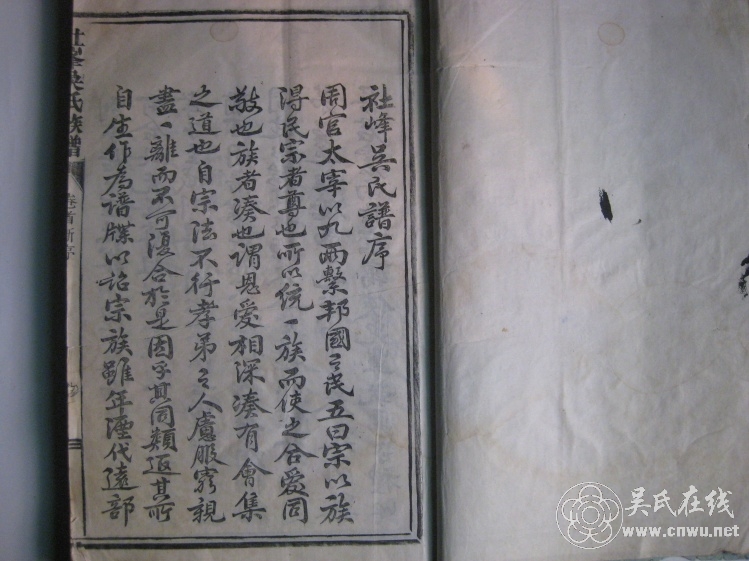 社峰吴氏譜序
周官太宰以九两繫邦國之民五曰宗以族
得民宗者尊也所以统一族而使之合爱同
敬也族者凑也谓恩爱相深凑有會集
之道也自宗法不行孝弟之人慮服穷親
盡一離而不可復合於是因乎其同類返其所
自生作為谱牒以詒宗族雖年湮代遠部
社峰吴氏族譜
卷首新序
吴氏在线
www.cnwu.net